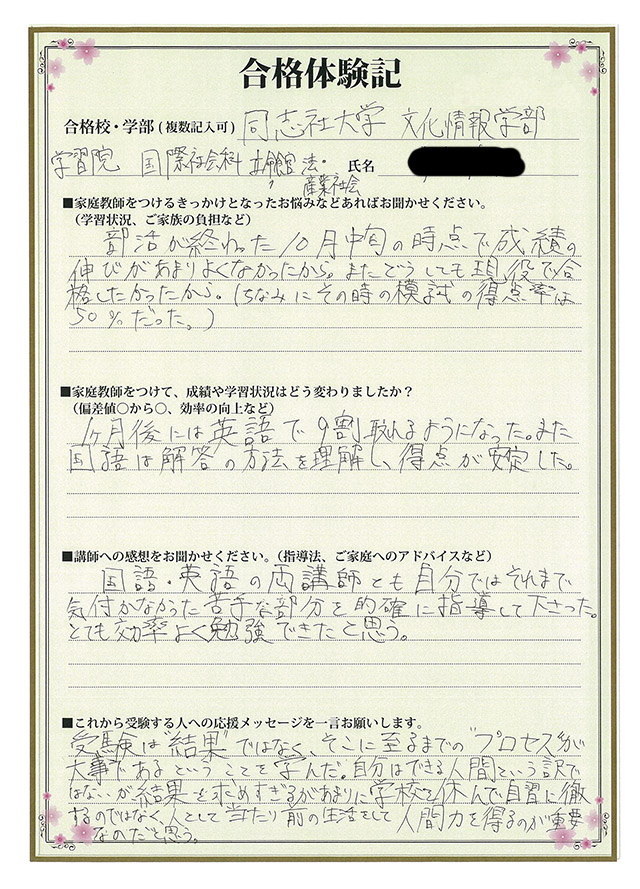 合格体験記
合格校・学部(複数記入可) 同志社大学 文化情報学部
学習院 国際社会科 立命館 法・
産業社会
氏名
■家庭教師をつけるきっかけとなったお悩みなどあればお聞かせください。
(学習状況、ご家族の負担など)
部活が終わった10月中旬の時点で成績の
伸びがあまりよくなかったから。またどうしても現役で合
格したかったから。(ちなみにその時の模試の得点率は
50%だった。)
■家庭教師をつけて、成績や学習状況はどう変わりましたか?
(偏差値○から○、効率の向上など)
1ヶ月後には英語で9割取れるようになった。また
国語は解答の方法を理解し、得点が安定した。
■講師への感想をお聞かせください。(指導法、ご家庭へのアドバイスなど)
国語・英語の両講師とも自分ではそれまで
気付かなかった苦手な部分を的確に指導して下さった。
とても効率よく勉強できたと思う。
■これから受験する人への応援メッセージを一言お願いします。
受験は"結果"ではなく、そこに至るまでの"プロセス"が
大事であるということを学んだ。自分はできる人間という訳で
はないが結果を求めすぎるがあまりに学校を休んで自習に徹
するのではなく、人として当たり前の生活をして人間力を得るのが重要
なのだと思う。